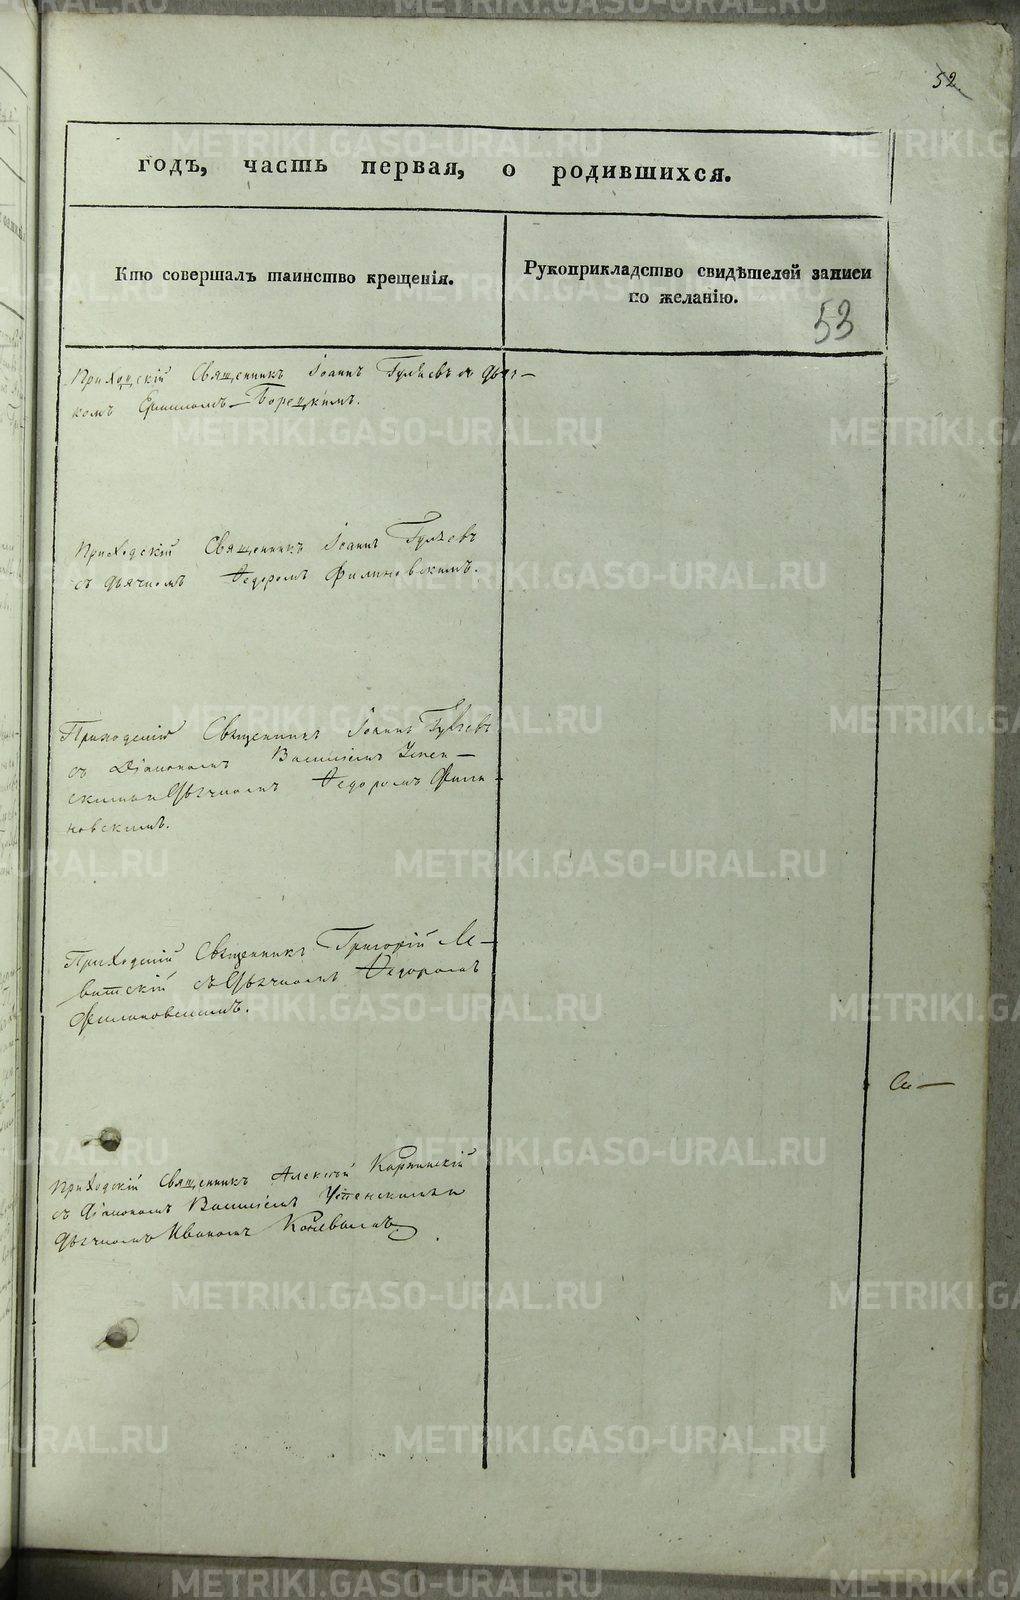 52
годъ, часть первая, о родившихся.
Кто совершалъ таинство крещенія.
Рукоприкладство свидѣтелей записи
по желанію.
53
Приходскій Священникъ Іоаннъ Гуляевъ съ дьяч-
комъ Борецкимъ.
Приходскій Священникъ Іоаннъ Гуляевъ
съ дьячкомъ Ѳедоромъ Филиновскимъ.
Приходскій Священникъ Іоаннъ Гуляевъ
съ Діакономъ Василіемъ Успен-
скимъ и Дьячкомъ Ѳедоромъ Фили-
новскимъ.
Приходскій Священникъ Григорій Ле-
витскій съ Дьячкомъ Ѳедоромъ
Филиновскимъ.
Приходскій Священникъ Алексѣй Карпинскій
съ Діакономъ Василіемъ Успенскимъ и
Дьячкомъ Иваномъ
METRIKI.GASO-URAL.RU